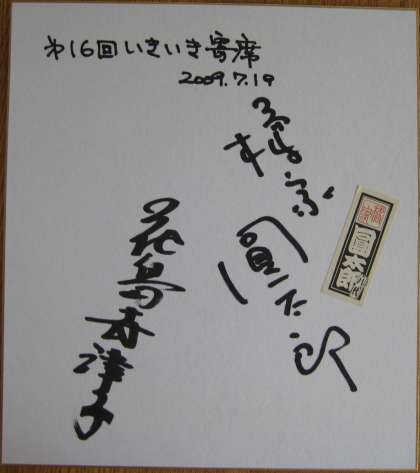 第16回いきいき寄席
2009.7.19
橘家
圓太郎
圓太郎
花島世津子